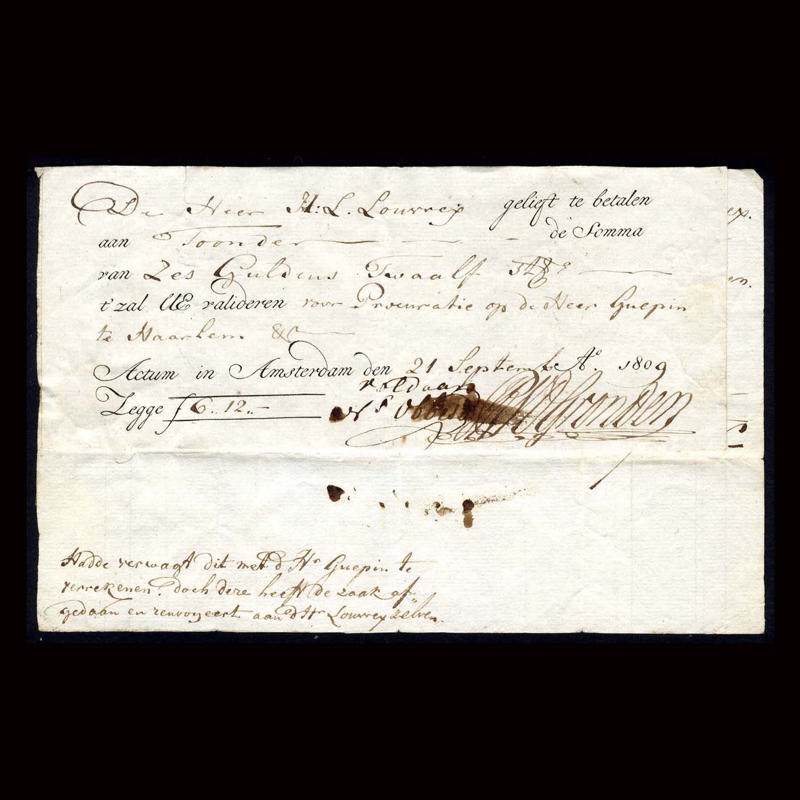 De Heer H: L. Lourrey gelieft te betalen
aan Toonder de Somma
van Zes Guldens Twaalf
t'zal UE valideren voor Procuratie op de Heer Guepin
te Haarlem &c
Actum in Amsterdam den 21 September Ao. 1809
voldaan
Zegge f 6.. 12..-
Hadde verwagt dit met d Hr Guepin te
verrekenen. doch deze heeft de zaak af„
gedaan en renvoyeert aan d Hr Lourrey zelven.